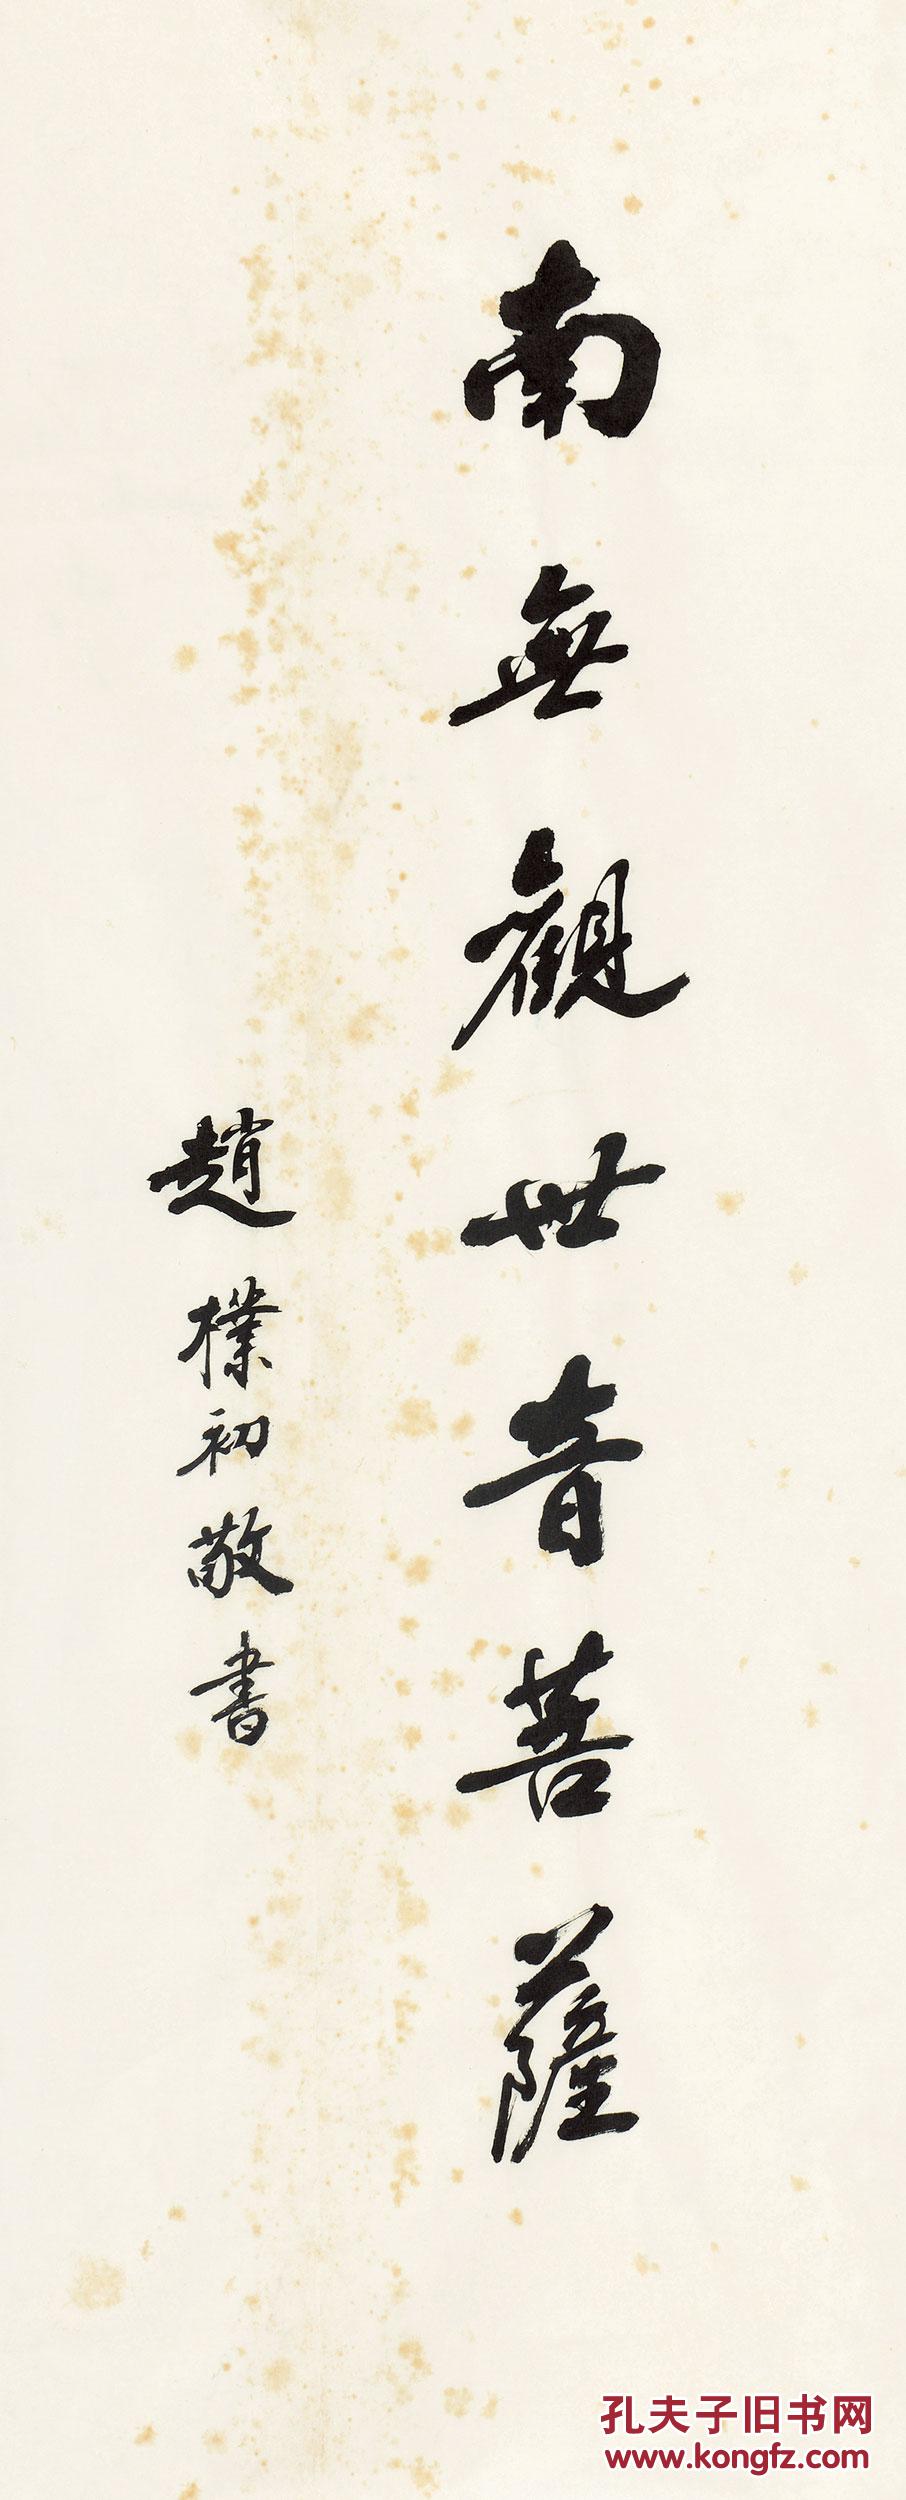 南無觀世音菩薩
趙樸初敬書
孔夫子旧书网
www.kongfz.com